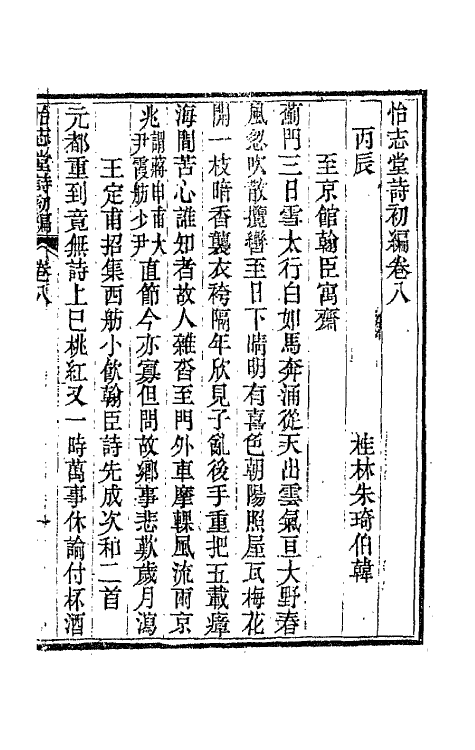 怡志堂詩初編卷八
桂林朱琦伯韓
丙辰
至京館翰臣寓齋
薊門三日雪太行白如馬奔涌從天出雲氣亘大野春
風忽吹散攬轡至日下晴明有喜色朝陽照屋瓦梅花
開一枝暗香襲衣袴隔年欣見子亂後手重把五載瘴
海間苦心誰知者故人雜沓至門外車摩輠風流兩京
兆謂蔣申甫大尹霞舫少尹直節今亦寡但問故鄉事悲歎歲月瀉
王定甫招集西舫小飲翰臣詩先成次和二首
元都重到竟無詩上巳桃紅又一時萬事休論付杯酒
怡志堂詩初編 卷八 一